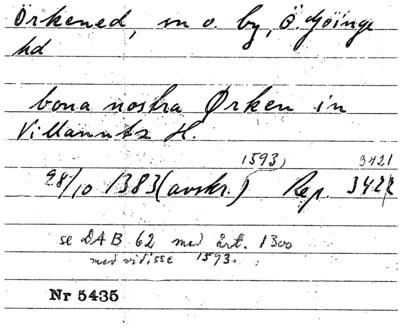 Örkened, sn o. by, Ö. Göinge
hd
bona nostra Ørken in
Villanntz H.
1593) 3421
28/10 1383 (avskr.) Rep. 3422
se DAB 62 med årt. 1300
med vidisse 1593.
Nr 5435